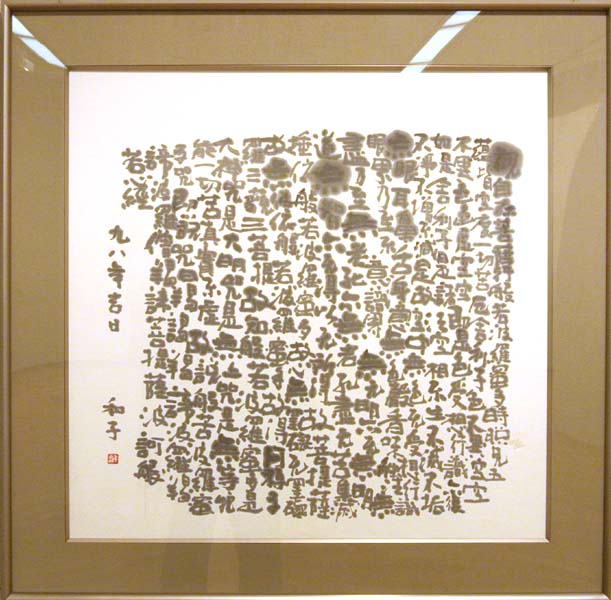 観自在菩薩般若波羅蜜多時照見五
蘊皆空度一切苦厄舎利子色不異空空
不異色色即是空空即是色受想行識亦復
如是舎利子是諸法空相不生不滅不垢
不浄不増不減是故空中無色無受想行識
無眼耳鼻舌身意無色声香味触法
眼界乃至無意識界無無明亦無無明
尽乃至無老死亦無老死尽無苦集滅
道無智亦無得以無所得故菩提薩
埵依般若波羅蜜多故心無罣礙無罣礙
故無依般若波羅蜜多故得阿耨多
羅三藐三菩提故知般若波羅蜜多是
大神咒是大明咒是無上咒是無等等咒
能一切苦真実不虚故説般若波羅蜜
多咒即説咒曰羯諦羯諦波羅羯
諦波羅僧羯諦菩提薩波訶般
若経
九八年吉日
和子